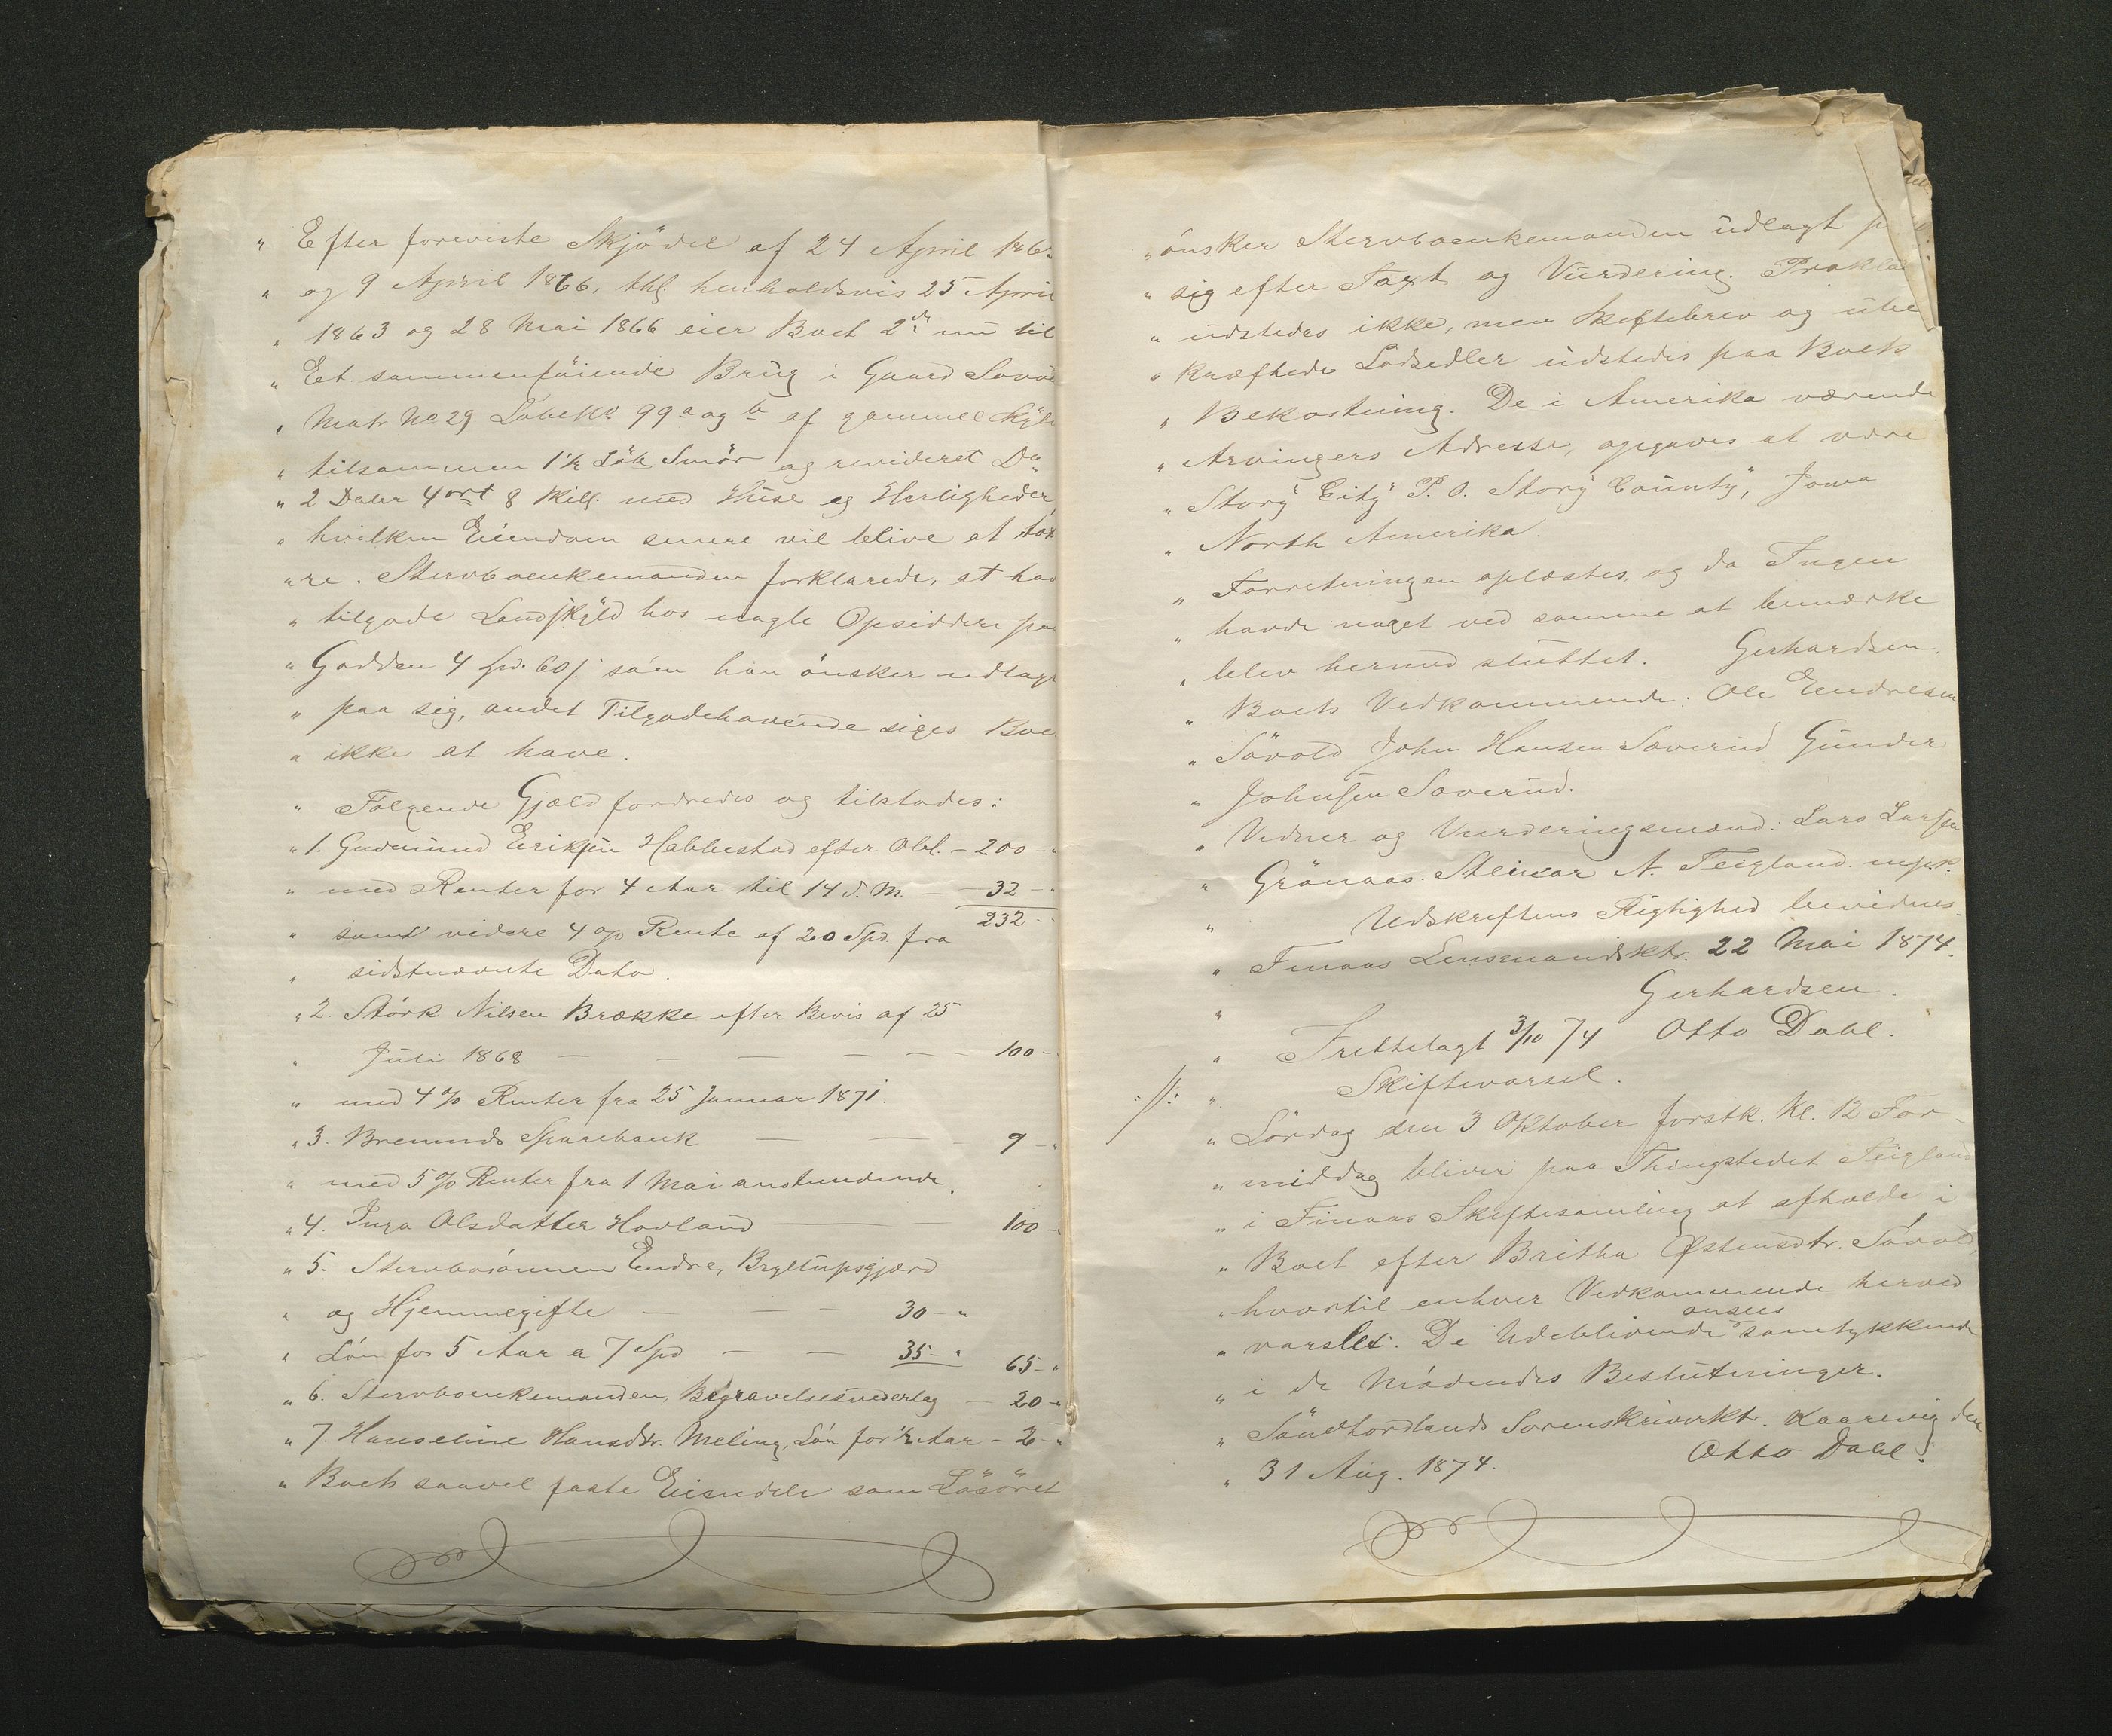 " Efter foreviste Skjöder af 24 April 186
" og 9 April 1866, thl. henholdsvis 25 April
" 1863 og 28 Mai 1866 eier Boet 2de nu til
" Et sammenföiende Brug i Gaard
" Matr No 29 Löbe No 99 a og b af gammel Skyld
" tilsammen 1½ Löb Smör og revideret Do
" 2 Daler 4 ort 8 Skill. med Huse og Herligheder,
" hvilken Eiendom senere vil blive at tax
" re. Stervboenkemanden forklarede, at hav
" tilgode Landskyld hos nogle Opsiddere paa
" Godden 4 Spd. 60 s. som han önsker udlagt
" paa sig, andet Tilgodehavende siges Boe
" ikke at have.
" Fölgende Gjæld fordredes og tilstodes:
" 1. Gudmund Eriksen Habbestad efter Obl. - 200 - "
" med Renter for 4 Aar til 14 d. M. - 32 - "
232 - "
" samt videre 4 % Rente af 200 Spd. fra
" sidstnævnte Dato.
" 2. Störk Nilsen Brække efter Bevis af 25
" Juli 1868 — — — — — 100 -
" med 4 % Renter fra 25 Januar 1871.
" 3. Bremnds Sparebank — — 9 - "
" med 5 % Renter fra 1 Mai anstundende.
" 4. Inga Olsdatter Hovland — — 100 -
" 5. Stervbosönnen Endre, Bryllupsgjærd
" og Hjemmegifte — — — 30 - "
" Lön for 5 Aar a 7 Spd — — 35 - " 65 - "
" 6. Stervboenkemanden, Begravelsesvederlag — 20 - "
" 7. Hanseline Hansdtr. Meling, Lön for ½ Aar - 2 - "
" Boets saavel faste Eiendele som Lösöret
" önsker Stervboenkemanden udlagt p
" sig efter Taxt og Vurdering. Prokla
" udstedes ikke, men Skiftebrev og ube
" kræftede Lodsedler udstedes paa Boets
" Bekostning. De i Amerika værende
" Arvingers Adresse, opgaves at være
" Story City P. O. Story County, Jowa
" North Amerika.
" Forretningen oplæstes, og da Ingen
" havde noget ved samme at bemærke
" blev hermed sluttet. Gerhardsen.
" Boets Vedkommende: Ole Endresen
" Sövold John Hansen Sæverud Gunder
" Johnsen Soverud.
" Vidner og Vurderingsmænd: Lars Larsen
" Grönaas. Steinar N. Teigland m. p. P.
" Udskriftens Rigtighed bevidnes.
" Finaas Lensmandsktr. 22 Mai 1874.
" Gerhardsen.
" Frettelagt 3/10 74 Otto Dahl.
:/: " Skiftevarsel.
" Lördag den 3 Oktober förstk. Kl. 12 For-
" middag bliver paa Thingstedet Teigland
" i Finaas Skiftesamling at afholde i
" Boet efter Britha Østensdtr. Sövold
" hvortil enhver Vedkommende herved
ansees
" varsles. De Udeblivende samtykkende
" i de Mödendes Beslutninger.
" Söndhordlands Sorenskriverktr. Kaarevig den
" 31 Aug. 1874. Otto Dahl.